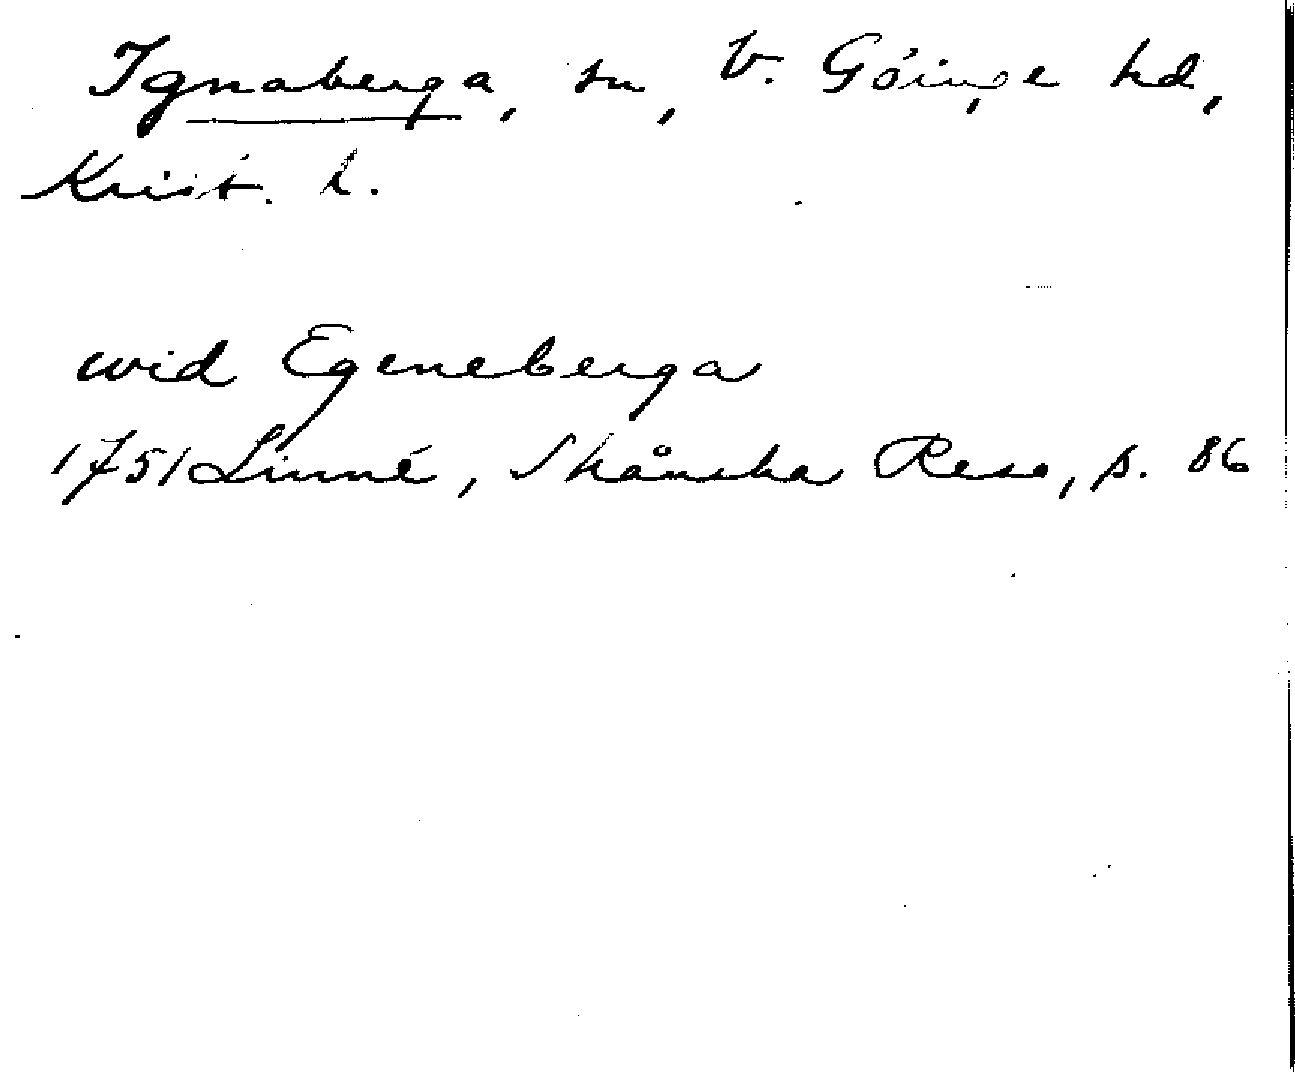 Ignaberga, sn, V. Göinge hd,
Krist. l.
wid Egeneberga
1751 Linné, Skånska Resa, s. 86